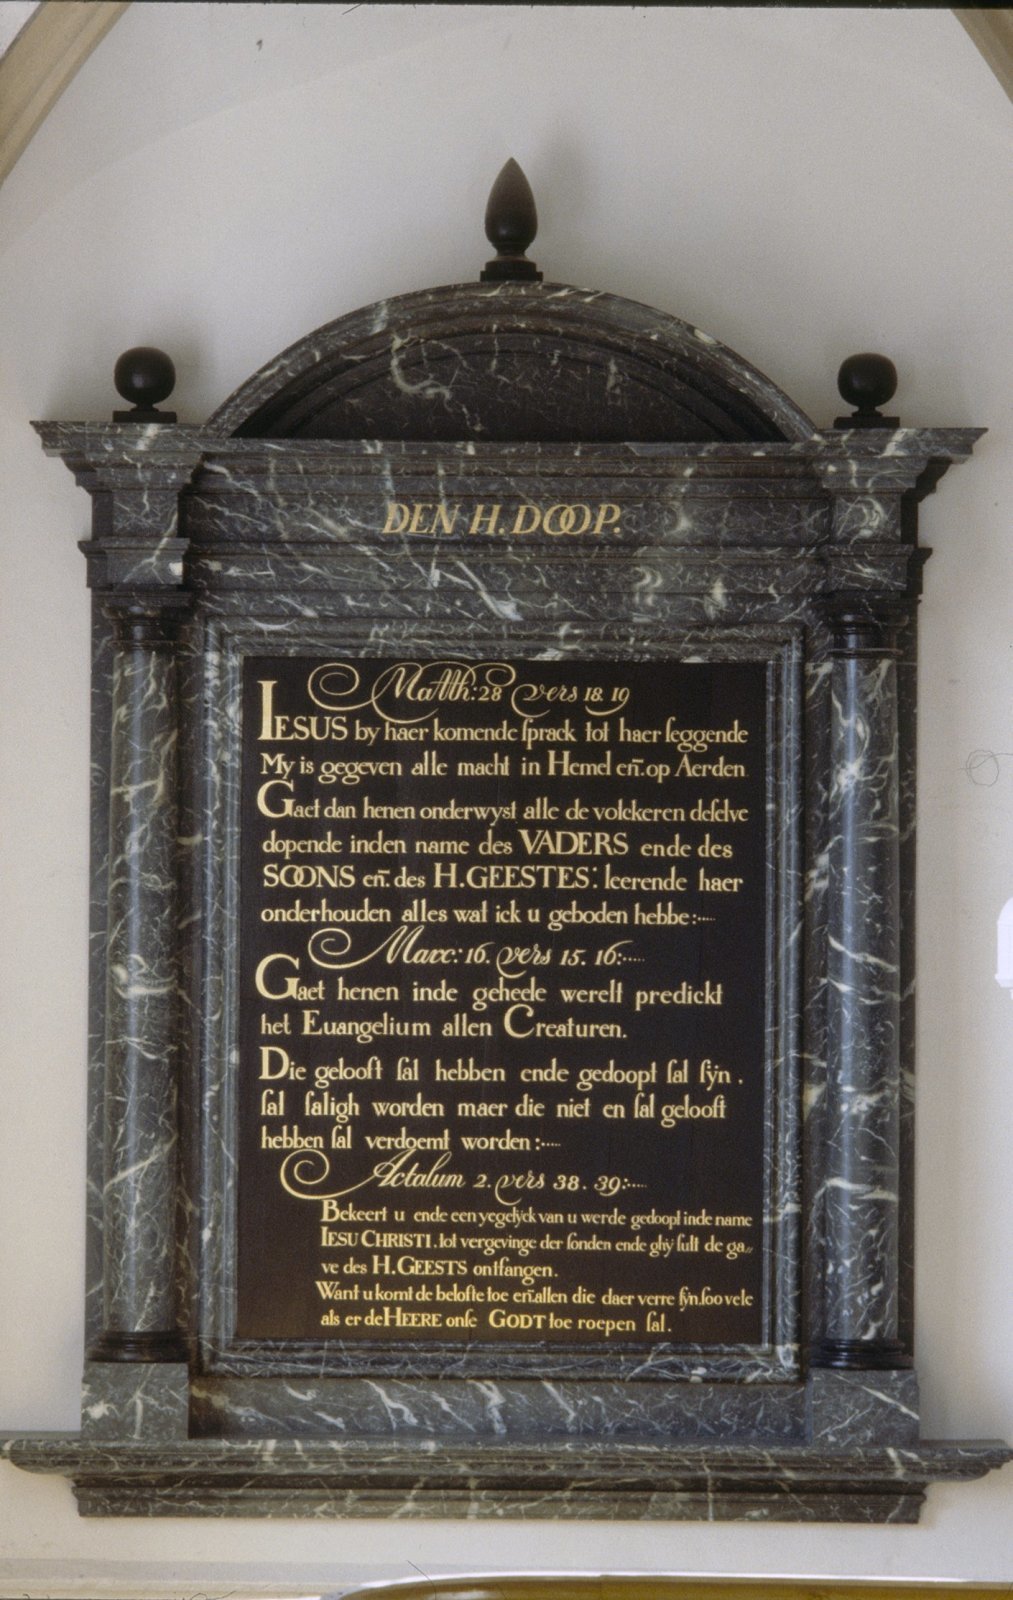 DEN H. DOOP.
Matth: 28 vers 18. 19
IESUS by haer komende ſprack tot haer ſeggende
My is gegeven alle macht in Hemel en̄. op Aerden
Gaet dan henen onderwyst alle de volckeren deſelve
dopende inden name des VADERS ende des
SOONS en̄. des H. GEESTES: leerende haer
onderhouden alles wat ick u geboden hebbe:....
Marc: 16. vers 15. 16:....
Gaet henen inde geheele werelt predickt
het Euangelium allen Creaturen.
Die gelooft ſal hebben ende gedoopt ſal ſÿn.
ſal ſaligh worden maer die niet en ſal gelooft
hebben ſal verdoemt worden:....
Actalum 2. vers 38. 39:....
Bekeert u ende een yegelÿck van u werde gedoopt inde name
IESU CHRISTI. tot vergevinge der ſonden ende ghÿ ſult de ga„
ve des H. GEESTS ontfangen.
Want u komt de belofte toe en̄. allen die daer verre ſÿn. ſoo vele
als er de HEERE onſe GODT toe roepen ſal.